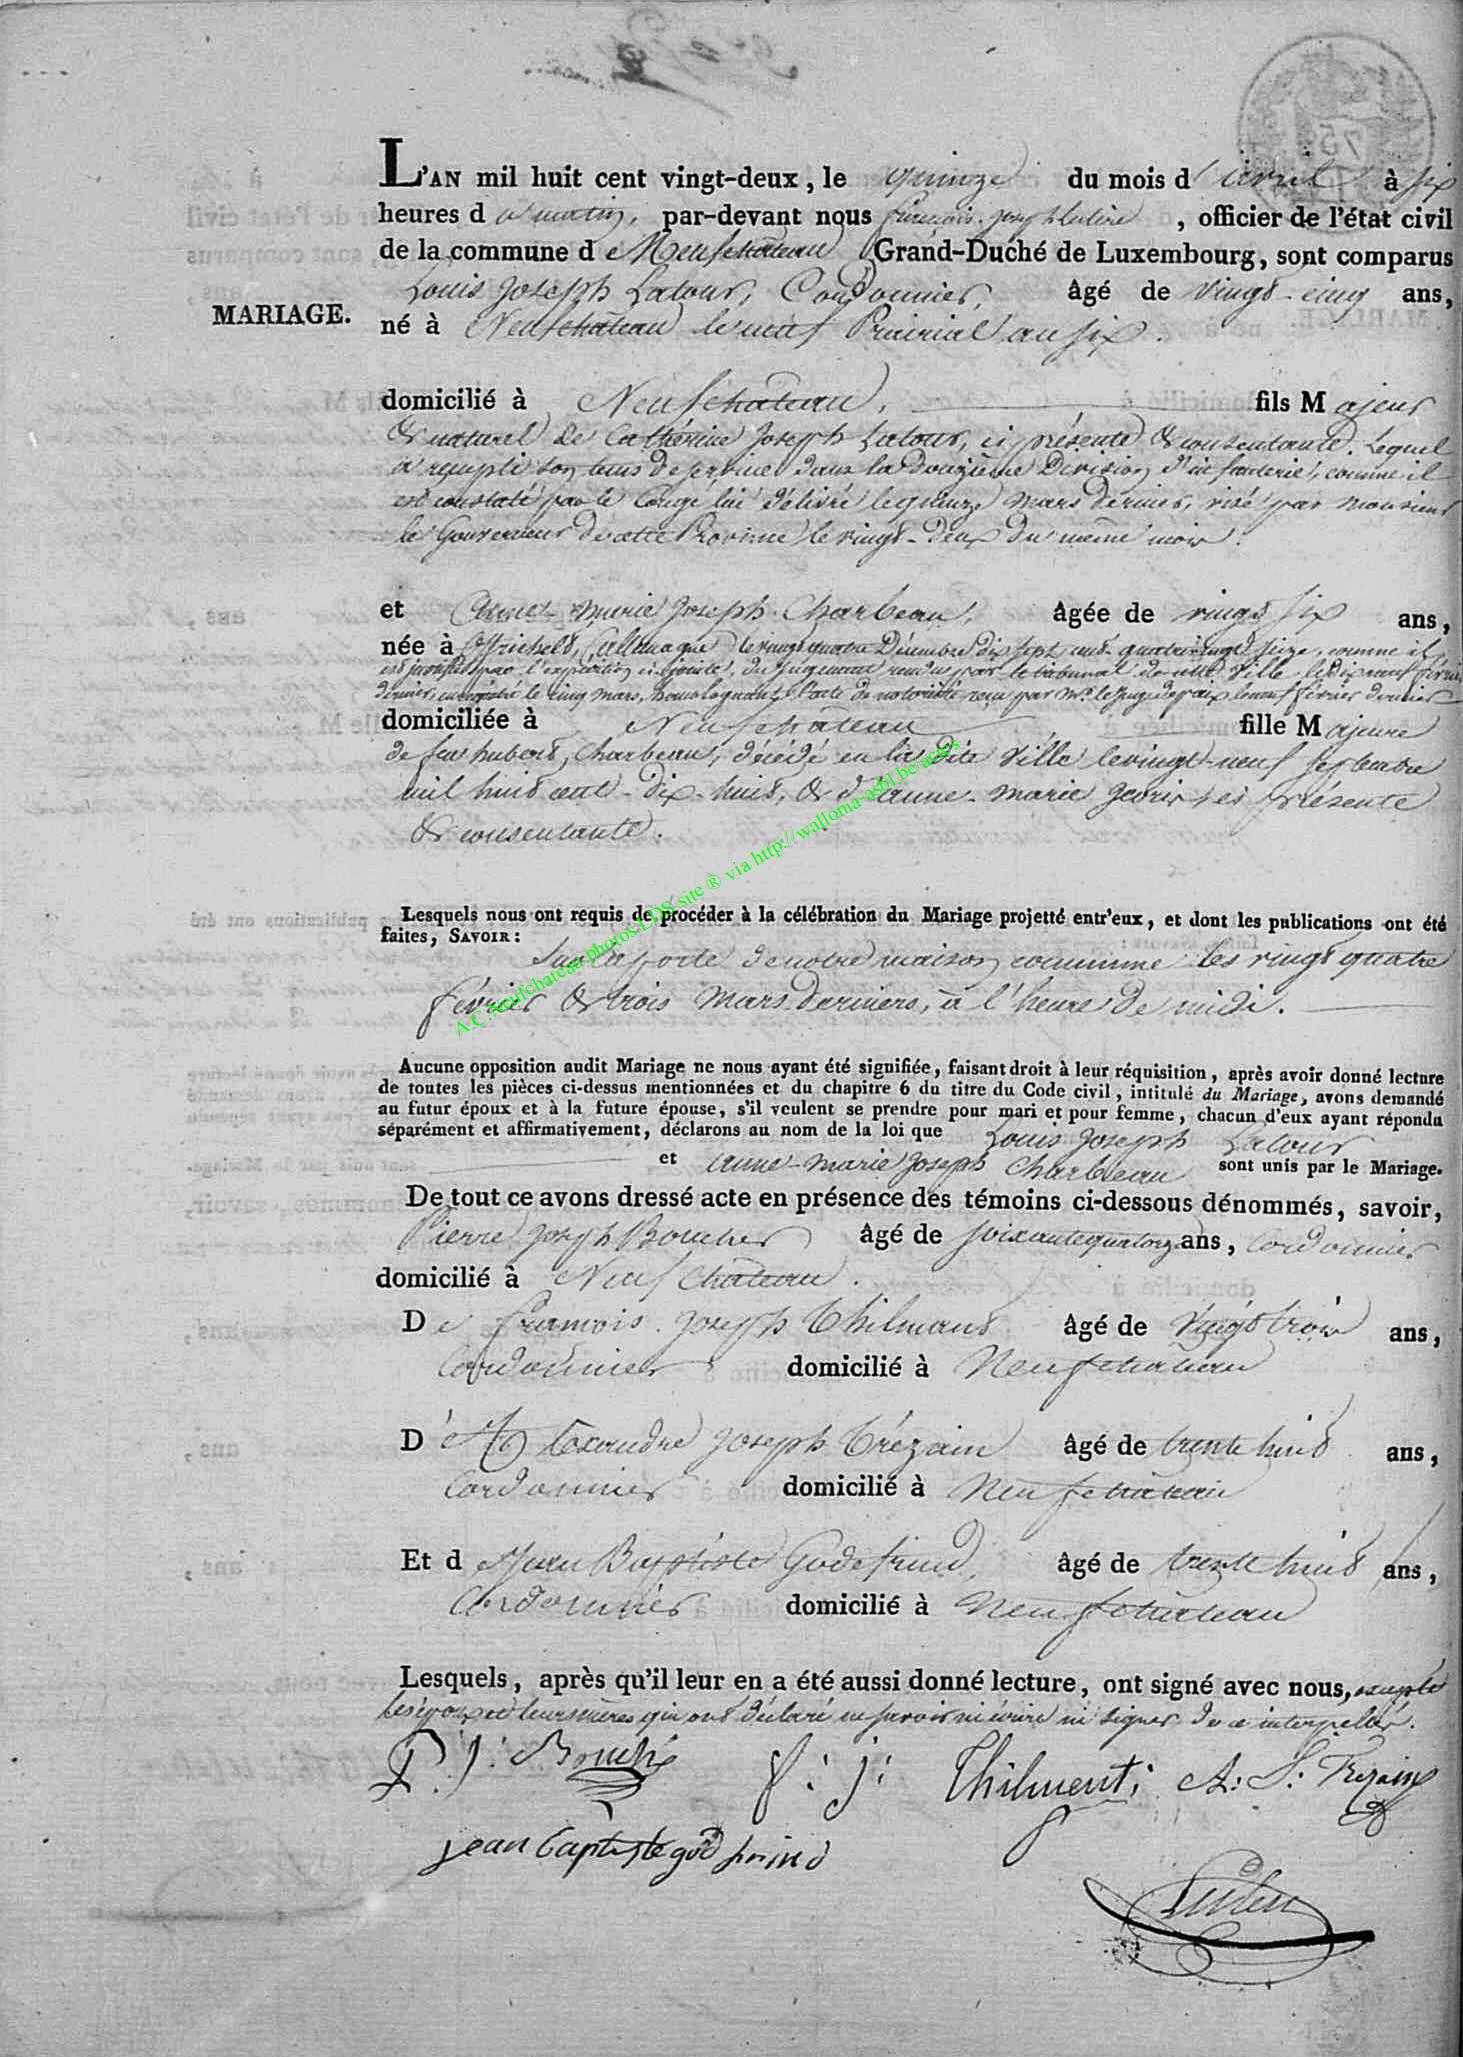 75
L'AN mil huit cent vingt-deux, le quinze du mois d'avril à six
heures du matin, par-devant nous françois joseph , officier de l'état civil
de la commune de Neufchâteau Grand-Duché de Luxembourg, sont comparus
Louis Joseph Latour, Cordonnier, âgé de vingt-cinq ans,
MARIAGE.
né à Neufchâteau le neuf Prairial an six.
domicilié à Neufchâteau, fils Majeur
& naturel de Cathérine Joseph Latour, ci présente & consentante. Lequel
a rempli son tems de service dans la Douzième Division d'infanterie, comme il
est constaté par le Congé lui délivré le quinze mars dernier, visé par monsieur
le Gouverneur de cette Province le vingt-deux du même mois.
et Anne-marie Joseph Charbeau, âgée de vingt six ans,
née à allemagne le vingt quatre Décembre dix sept cent quatre vingt seize, comme il
est justifié par l'expédition ci-jointe, du Jugement rendu par le tribunal de cette Ville le dix neuf février
dernier, enregistré le cinq mars, homologuant l'acte de notoriété reçu par Mr. le juge de paix le neuf février dernier
domiciliée à Neufchâteau fille Majeure
de feu hubert Charbeau, décédé en la dite Ville le vingt-neuf septembre
mil huit cent-dix-huit, & d'anne-marie ci présente
& consentante.
Lesquels nous ont requis de procéder à la célébration du Mariage projetté entr'eux, et dont les publications ont été
faites, SAVOIR:
Sur la porte de notre maison commune les vingt quatre
février & trois Mars derniers, à l'heure de midi.
Aucune opposition audit Mariage ne nous ayant été signifiée, faisant droit à leur réquisition, après avoir donné lecture
de toutes les pièces ci-dessus mentionnées et du chapitre 6 du titre du Code civil, intitulé du Mariage, avons demandé
au futur époux et à la future épouse, s'il veulent se prendre pour mari et pour femme, chacun d'eux ayant répondu
séparément et affirmativement, déclarons au nom de la loi que Louis Joseph Latour
et anne-marie Joseph Charbeau sont unis par le Mariage.
De tout ce avons dressé acte en présence des témoins ci-dessous dénommés, savoir,
Pierre Joseph Bouchez âgé de soixante quatorze ans, cordonnier
domicilié à Neufchâteau.
De françois Joseph Thilmant âgé de Vingt trois ans,
Cordonnier domicilié à Neufchateau
D'Alexandre Joseph Trézain âgé de trente huit ans,
Cordonnier domicilié à Neufchâteau
Et de Jean Baptiste Godefrind, âgé de trente huit ans,
Cordonnier domicilié à Neufchâteau
Lesquels, après qu'il leur en a été aussi donné lecture, ont signé avec nous, excepté
les époux et leurs mères qui ont déclaré ne savoir ni écrire ni signer de ce interpellés.
P. J: Bouché f: j: Thilment; A: J: Trezain
jean baptiste god frind
A.C. Neufchateau photos LDS site ® via http://walloma-asbl.be/actes